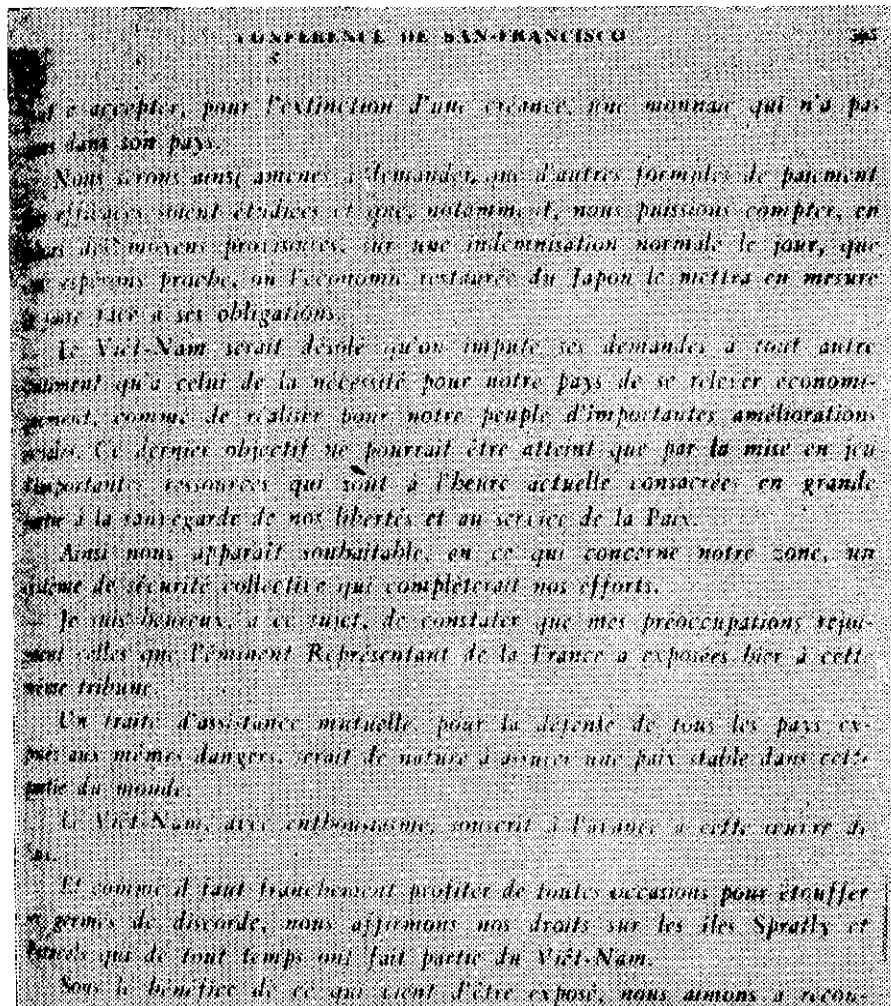 CONFERENCE DE SAN-FRANCISCO
accepter, pour l'extinction d'une créance, une monnaie qui n'a pas
dans son pays.
Nous serons ainsi amenés à demander, que d'autres formules de paiement
efficaces soient étudiées et que, notamment, nous puissions compter, en
des moyens provisoires, sur une indemnisation normale le jour, que
espérons proche, où l'économie restaurée du Japon le mettra en mesure
face à ses obligations.
Le Viêt-Nam serait désolé qu'on impute ses demandes à tout autre
qu'à celui de la nécessité pour notre pays de se relever économi-
quement, comme de réaliser pour notre peuple d'importantes améliorations
sociales. Ce dernier objectif ne pourrait être atteint que par la mise en jeu
d'importantes ressources qui sont à l'heure actuelle consacrées en grande
partie à la sauvegarde de nos libertés et au service de la Paix.
Ainsi nous apparaît souhaitable, en ce qui concerne notre zone, un
système de sécurité collective qui compléterait nos efforts.
Je suis heureux, à ce sujet, de constater que mes préoccupations rejoi-
gnent celles que l'éminent Représentant de la France a exposées hier à cette
même tribune.
Un traité d'assistance mutuelle, pour la défense de tous les pays ex-
posés aux mêmes dangers, serait de nature à assurer une paix stable dans cette
partie du monde.
Le Viêt-Nam, avec enthousiasme, souscrit à l'avance à cette œuvre de
Et comme il faut franchement profiter de toutes occasions pour étouffer
germes de discorde, nous affirmons nos droits sur les îles Spratly et
Paracels qui de tout temps ont fait partie du Viêt-Nam.
Sous le bénéfice de ce qui vient d'être exposé, nous aimons à recon-